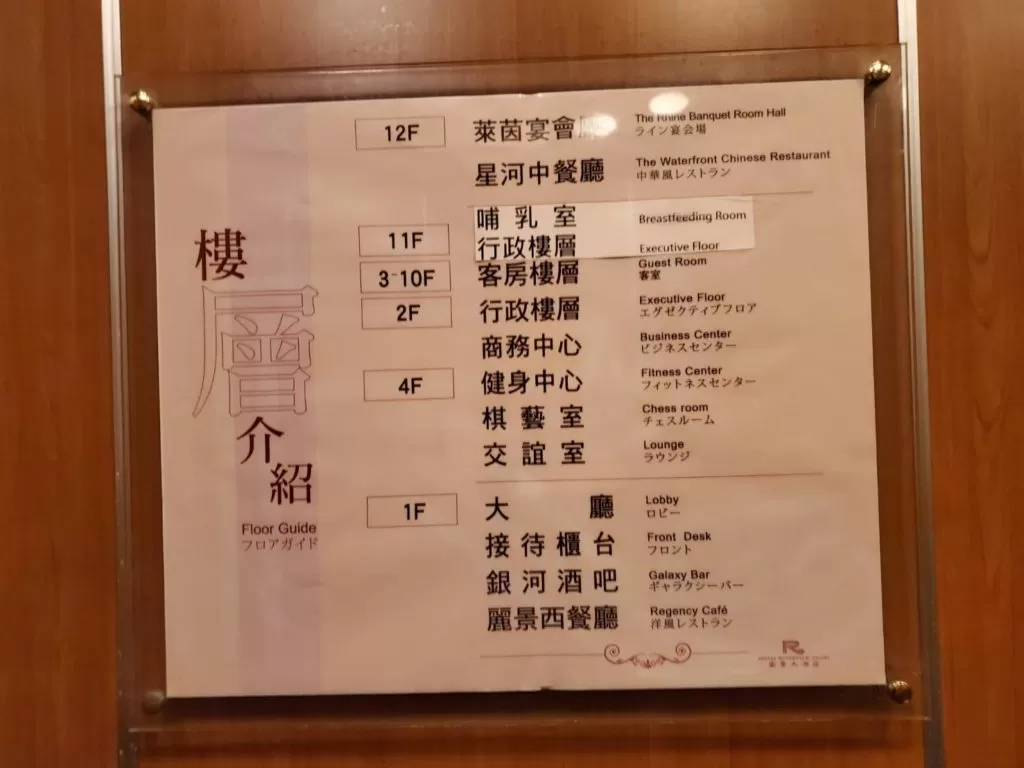 樓層介紹
Floor Guide
フロアガイド
12F 萊茵宴會廳 The Rhine Banquet Room Hall
ライン宴会場
星河中餐廳 The Waterfront Chinese Restaurant
中華風レストラン
哺乳室 Breastfeeding Room
11F 行政樓層 Executive Floor
3-10F 客房樓層 Guest Room
客室
2F 行政樓層 Executive Floor
エグゼクティブフロア
商務中心 Business Center
ビジネスセンター
4F 健身中心 Fitness Center
フィットネスセンター
棋藝室 Chess room
チェスルーム
交誼室 Lounge
ラウンジ
1F 大廳 Lobby
ロビー
接待櫃台 Front Desk
フロント
銀河酒吧 Galaxy Bar
ギャラクシーバー
麗景西餐廳 Regency Café
洋風レストラン
R